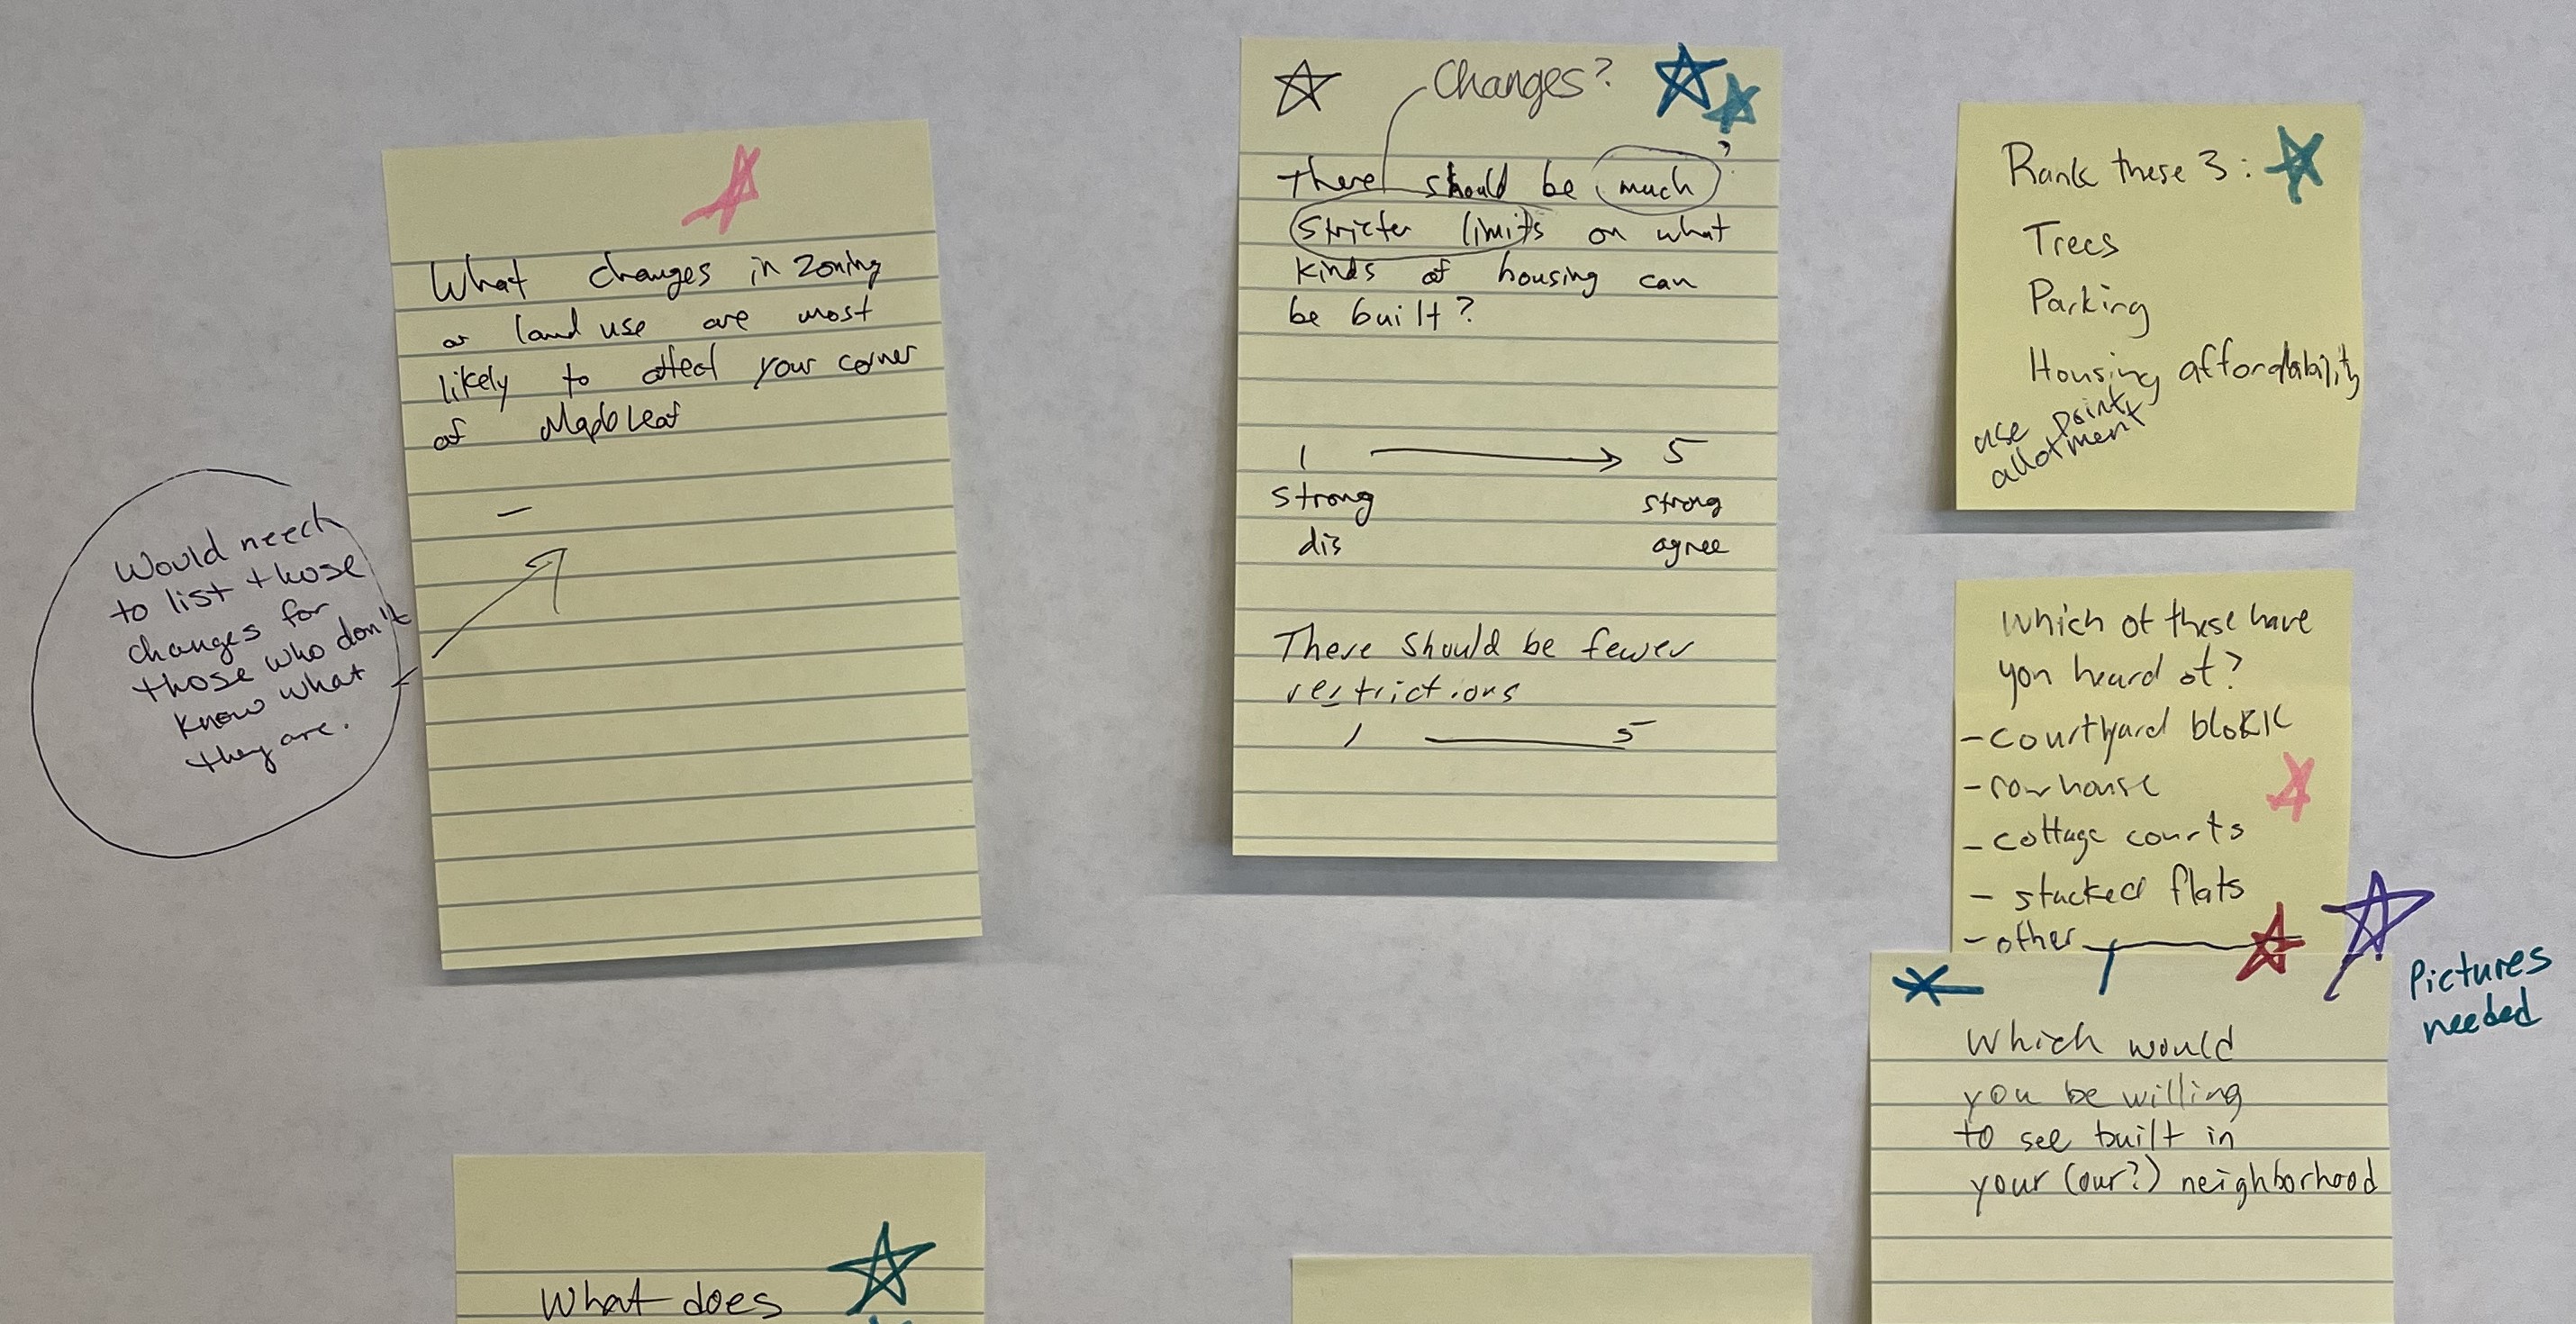 What changes in zoning
or land use are most
likely to affect your corner
of Maple Leaf
–
Would need
to list those
changes for
those who don't
know what
they are.
Changes?
?
There should be much
stricter limits on what
kinds of housing can
be built?
1 5
strong strong
dis agree
There should be fewer
restrictions
1 5
Rank these 3:
Trees
Parking
Housing affordability
use point
allotment
Which of these have
you heard of?
- courtyard blokk
- rowhouse
- cottage courts
- stacked flats
- other
Pictures
needed
Which would
you be willing
to see built in
your (our?) neighborhood
What does